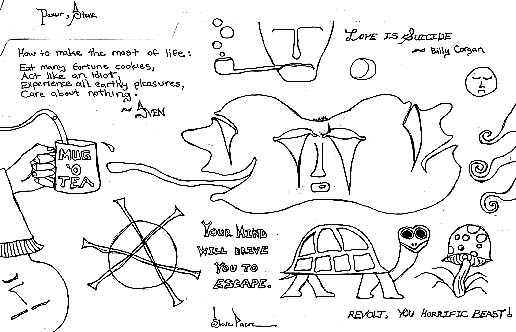 How to make the most of life:
Eat many fortune cookies,
Act like an idiot,
Experience all earthly pleasures,
Care about nothing.
LOVE IS SUICIDE
~ Billy Corgan
MUG
'O
TEA
YOUR MIND
WILL DRIVE
YOU TO
ESCAPE.
REVOLT, YOU HORRIFIC BEAST!